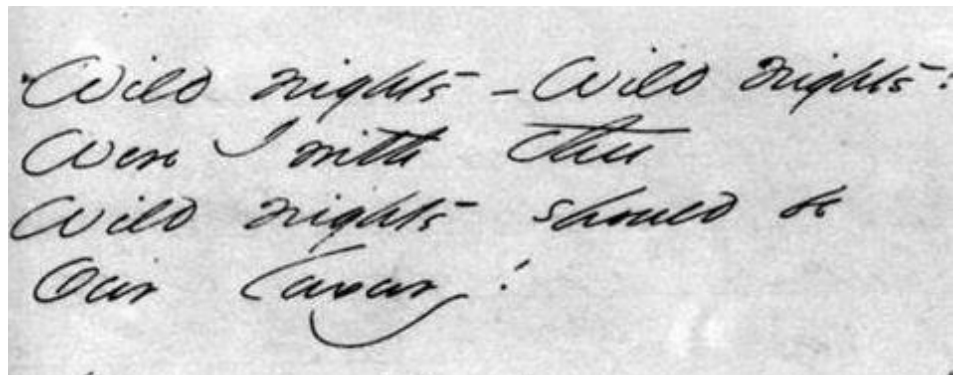 Wild nights – Wild nights!
Were I with thee
Wild nights should be
Our luxury!